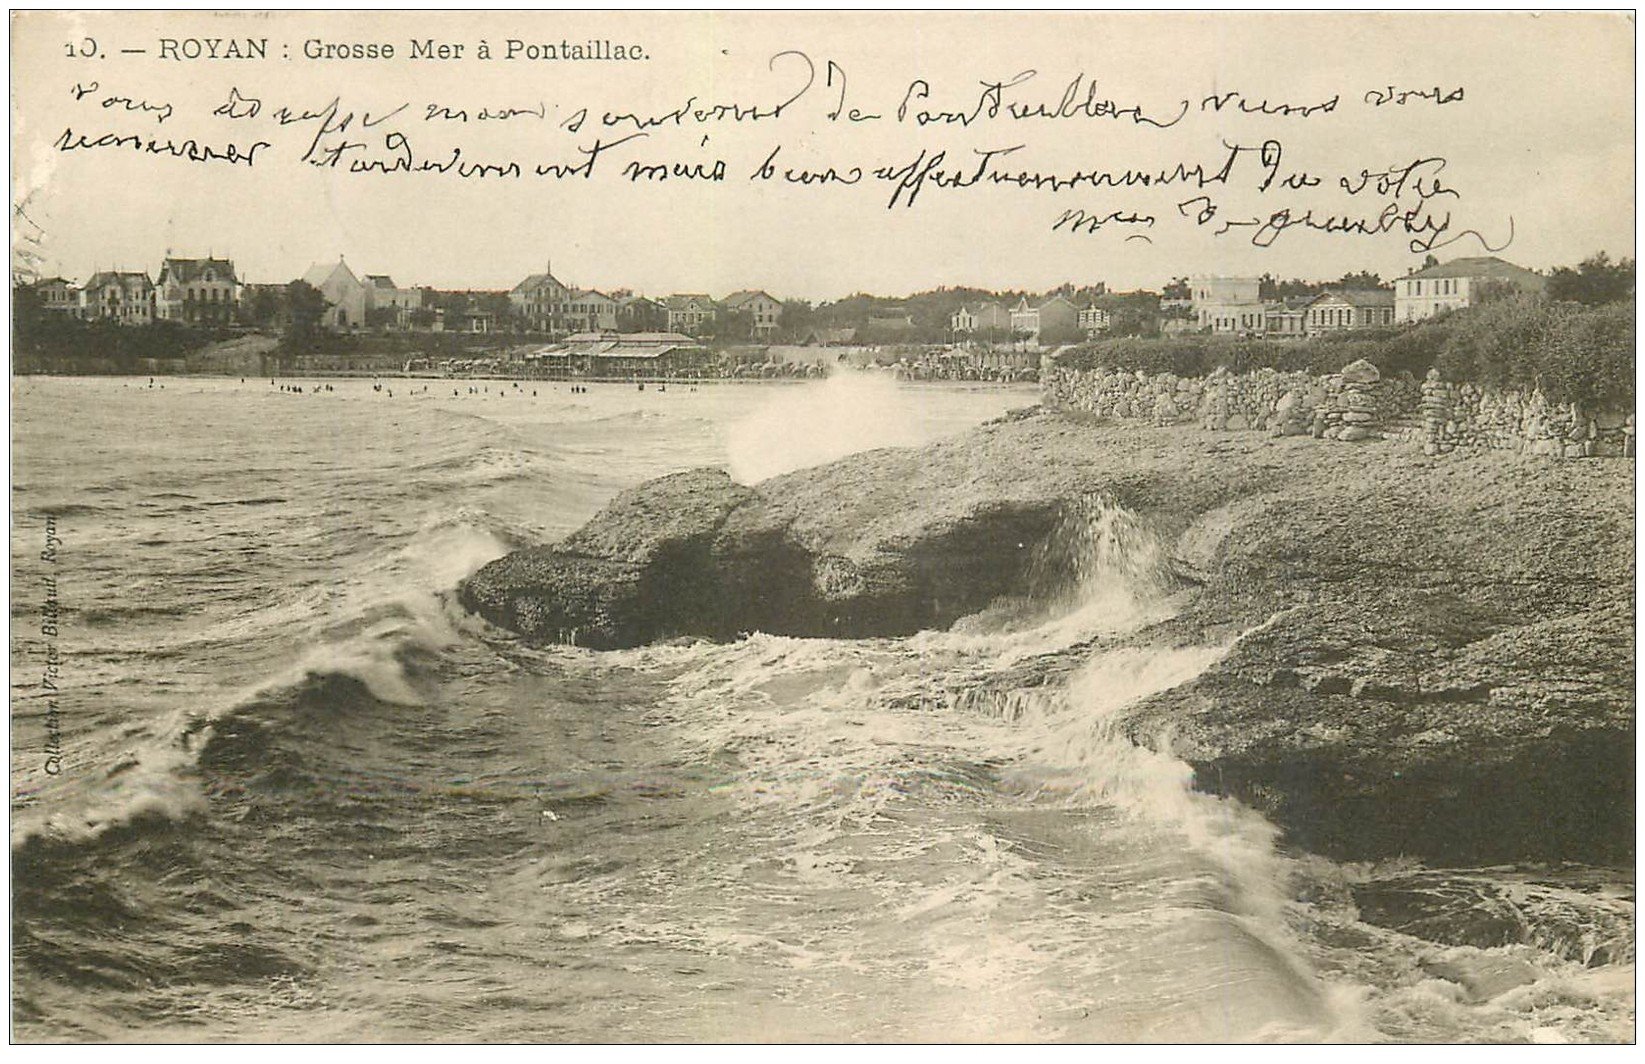 10. — ROYAN : Grosse Mer à Pontaillac.
vous adresse mon souvenir de viens vous
remercier tardivement mais bien affectueusement du votre
Collection Victor Billaud Royan